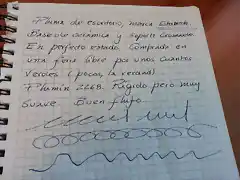 Pluma de escritorio, marca Esterbrook.
Base de cerámica y soporte cromado.
En perfecto estado. Comprada en
una feria libre por unos cuantos
Verdes (pocos, la verdad)
Plumín 2668. Rígido pero muy
suave. Buen flujo.